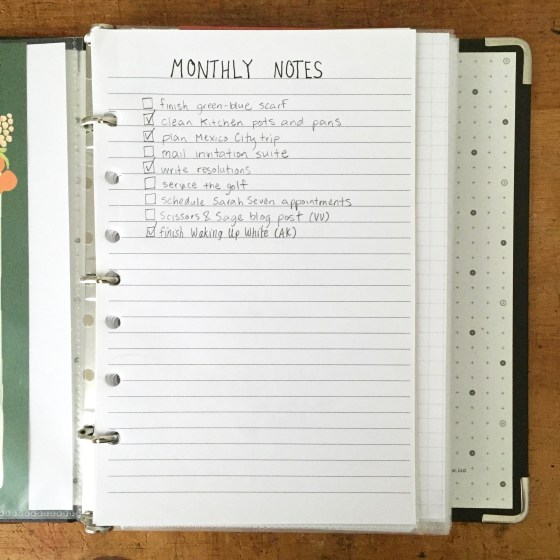 MONTHLY NOTES
finish green-blue scarf
clean kitchen pots and pans
plan Mexico City trip
mail invitation suite
write resolutions
service the golf
schedule Sarah Seven appointments
Scissors & Sage blog post (VV)
finish Waking Up White (AK)